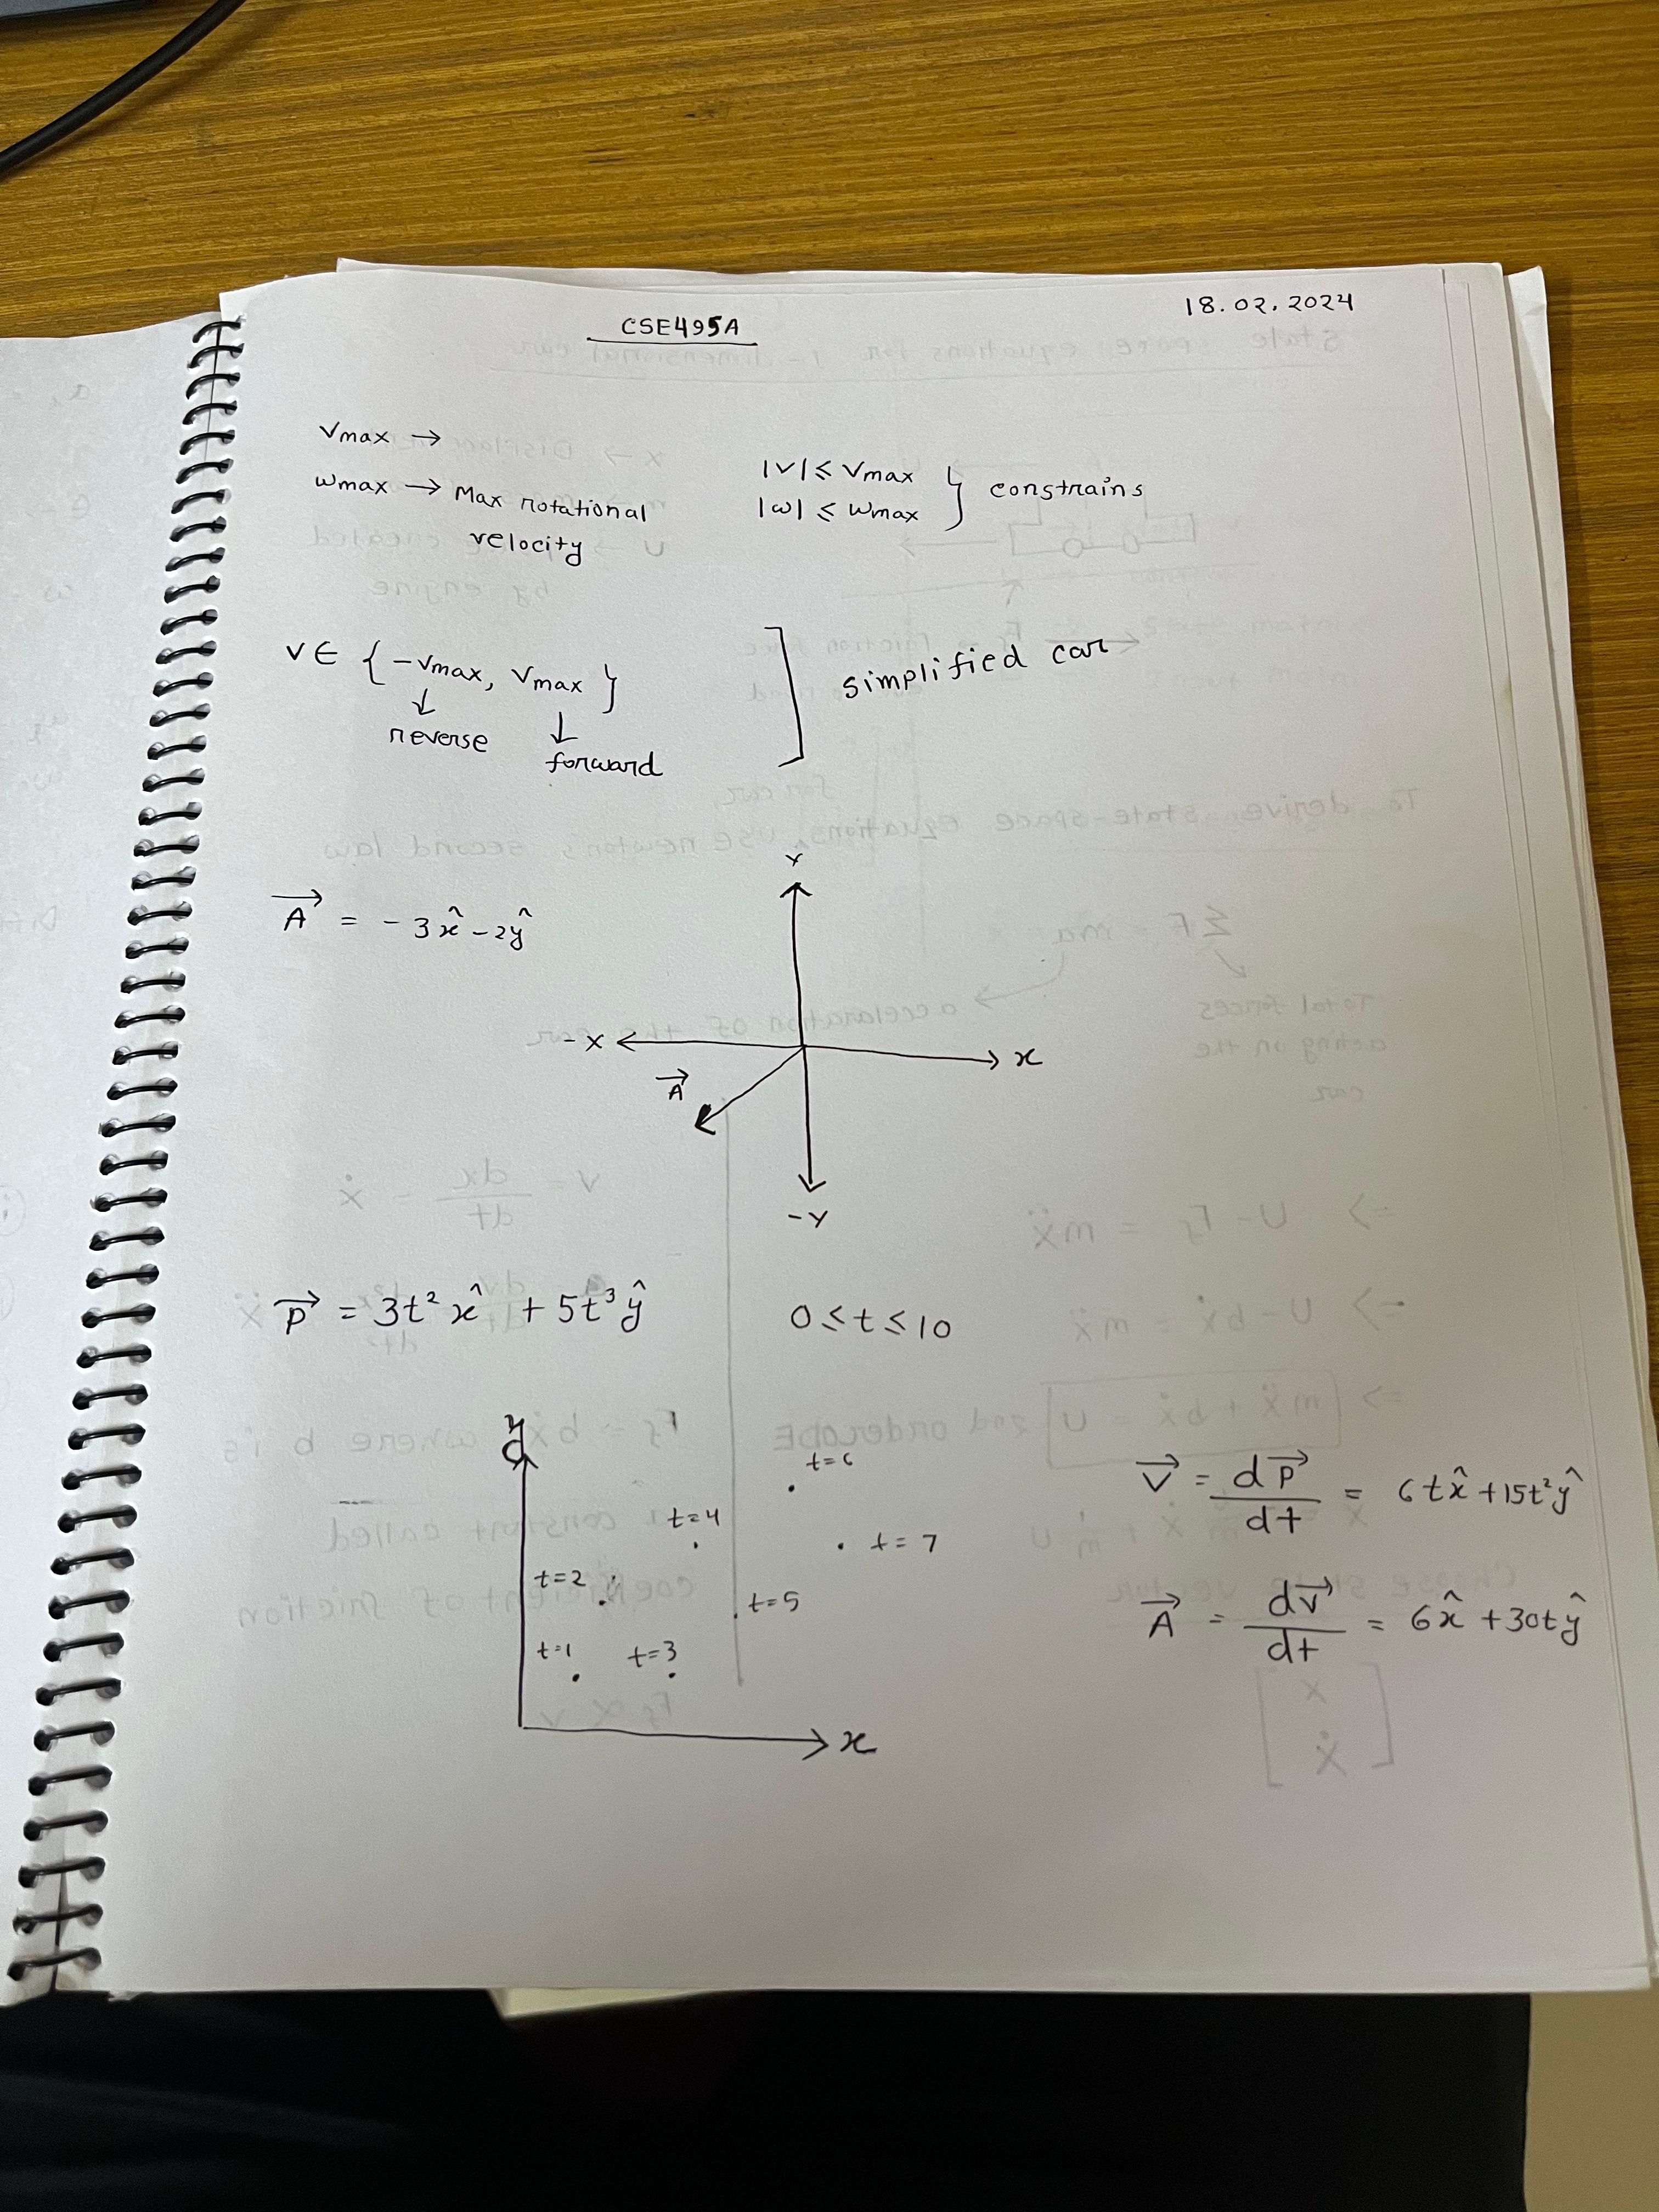 CSE495A
18.02.2024
Vmax →
ωmax → Max rotational
velocity
|v| ≤ Vmax
|ω| ≤ ωmax } constrains
v ∈ {-vmax, vmax}
↓ reverse
↓ forward
] simplified car
A⃗ = -3x̂ - 2ŷ
Y
-X
x
A⃗
-Y
P⃗ = 3t² x̂ + 5t³ ŷ
0 ≤ t ≤ 10
y
t=6
t=4
t=7
t=2
t=5
t=1
t=3
x
V⃗ = dP⃗/dt = 6tx̂ + 15t²ŷ
A⃗ = dv⃗/dt = 6x̂ + 30tŷ